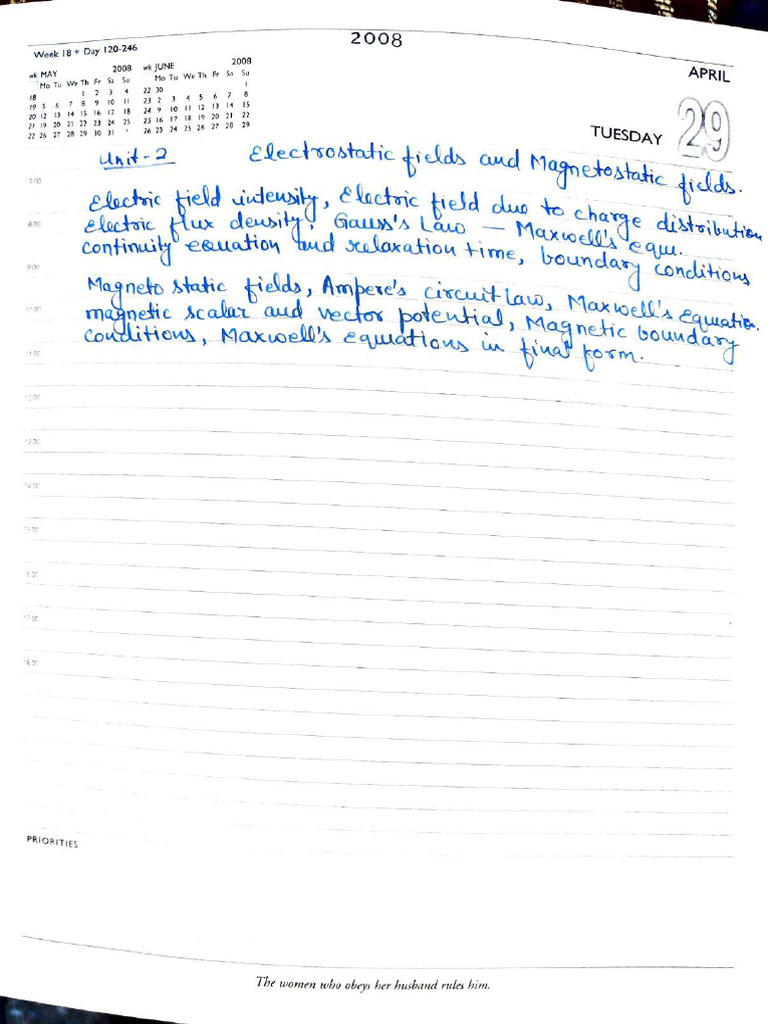 2008
Week 18 • Day 120-246
APRIL
29
TUESDAY
wk MAY 2008
Mo Tu We Th Fr Sa Su
18 1 2 3 4
19 5 6 7 8 9 10 11
20 12 13 14 15 16 17 18
21 19 20 21 22 23 24 25
22 26 27 28 29 30 31
wk JUNE 2008
Mo Tu We Th Fr Sa Su
22 30 1
23 2 3 4 5 6 7 8
24 9 10 11 12 13 14 15
25 16 17 18 19 20 21 22
26 23 24 25 26 27 28 29
Unit-2 Electrostatic fields and Magnetostatic fields.
7.00
Electric field intensity, Electric field due to charge distribution
Electric flux density, Gauss's Law — Maxwell's equ.
8.00
continuity equation and relaxation time, boundary conditions
9.00
Magneto static fields, Ampere's circuit law, Maxwell's Equation.
magnetic scalar and vector potential, Magnetic boundary
10.00
conditions, Maxwell's equations in final form.
11.00
12.00
13.00
14.00
15.00
16.00
17.00
18.00
PRIORITIES
The women who obeys her husband rules him.